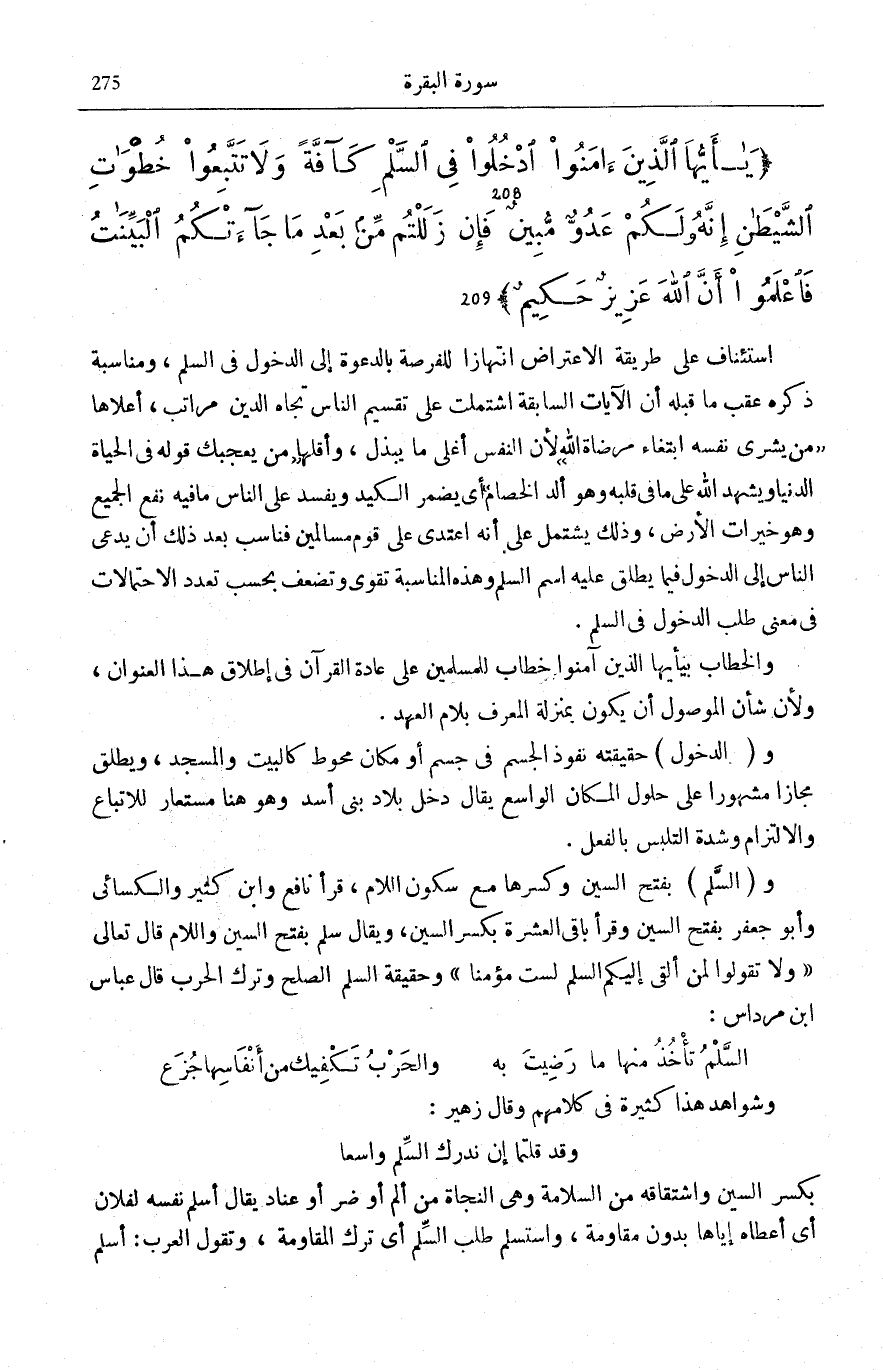 275 سورة البقرة
﴿يَـٰأَيُّهَا ٱلَّذِينَ ءَامَنُوا۟ ٱدْخُلُوا۟ فِى ٱلسَّلْمِ كَآفَّةً وَلَا تَتَّبِعُوا۟ خُطُوَٰتِ
ٱلشَّيْطَٰنِ إِنَّهُۥ لَكُمْ عَدُوٌّ مُّبِينٌ 208 فَإِن زَلَلْتُم مِّنۢ بَعْدِ مَا جَآءَتْكُمُ ٱلْبَيِّنَٰتُ
فَٱعْلَمُوا۟ أَنَّ ٱللَّهَ عَزِيزٌ حَكِيمٌ﴾ 209
استئناف على طريقة الاعتراض انتهازا للفرصة بالدعوة إلى الدخول فى السلم ، ومناسبة
ذكره عقب ما قبله أن الآيات السابقة اشتملت على تقسيم الناس تجاه الدين مراتب ، أعلاها
«من يشرى نفسه ابتغاء مرضاة الله» لأن النفس أغلى ما يبذل ، وأقلها «من يعجبك قوله فى الحياة
الدنيا ويشهد الله على ما فى قلبه وهو ألد الخصام» أى يضمر الكيد ويفسد على الناس مافيه نفع الجميع
وهو خيرات الأرض ، وذلك يشتمل على أنه اعتدى على قوم مسالمين فناسب بعد ذلك أن يدعى
الناس إلى الدخول فيما يطلق عليه اسم السلم وهذه المناسبة تقوى وتضعف بحسب تعدد الاحتمالات
فى معنى طلب الدخول فى السلم .
والخطاب بيأيها الذين آمنوا خطاب للمسلمين على عادة القرآن فى إطلاق هـذا العنوان ،
ولأن شأن الموصول أن يكون بمنزلة المعرف بلام العهد .
و ( الدخول ) حقيقته نفوذ الجسم فى جسم أو مكان محوط كالبيت والمسجد ، ويطلق
مجازا مشهورا على حلول المكان الواسع يقال دخل بلاد بنى أسد وهو هنا مستعار للاتباع
والالتزام وشدة التلبس بالفعل .
و ( السَّلم ) بفتح السين وكسرها مع سكون اللام ، قرأ نافع وابن كثير والكسائى
وأبو جعفر بفتح السين وقرأ باقى العشرة بكسر السين، ويقال سلم بفتح السين واللام قال تعالى
« ولا تقولوا لمن ألقى إليكم السلم لست مؤمنا » وحقيقة السلم الصلح وترك الحرب قال عباس
ابن مرداس :
السَّلْمُ تَأْخُذُ منها ما رَضِيتَ به والحَرْبُ تَكْفِيك من أَنْفَاسِها جُرَع
وشواهد هذا كثيرة فى كلامهم وقال زهير :
وقد قلتما إن ندرك السِّلم واسعا
بكسر السين واشتقاقه من السلامة وهى النجاة من ألم أو ضر أو عناد يقال أسلم نفسه لفلان
أى أعطاه إياها بدون مقاومة ، واستسلم طلب السِّلم أى ترك المقاومة ، وتقول العرب : أسلم